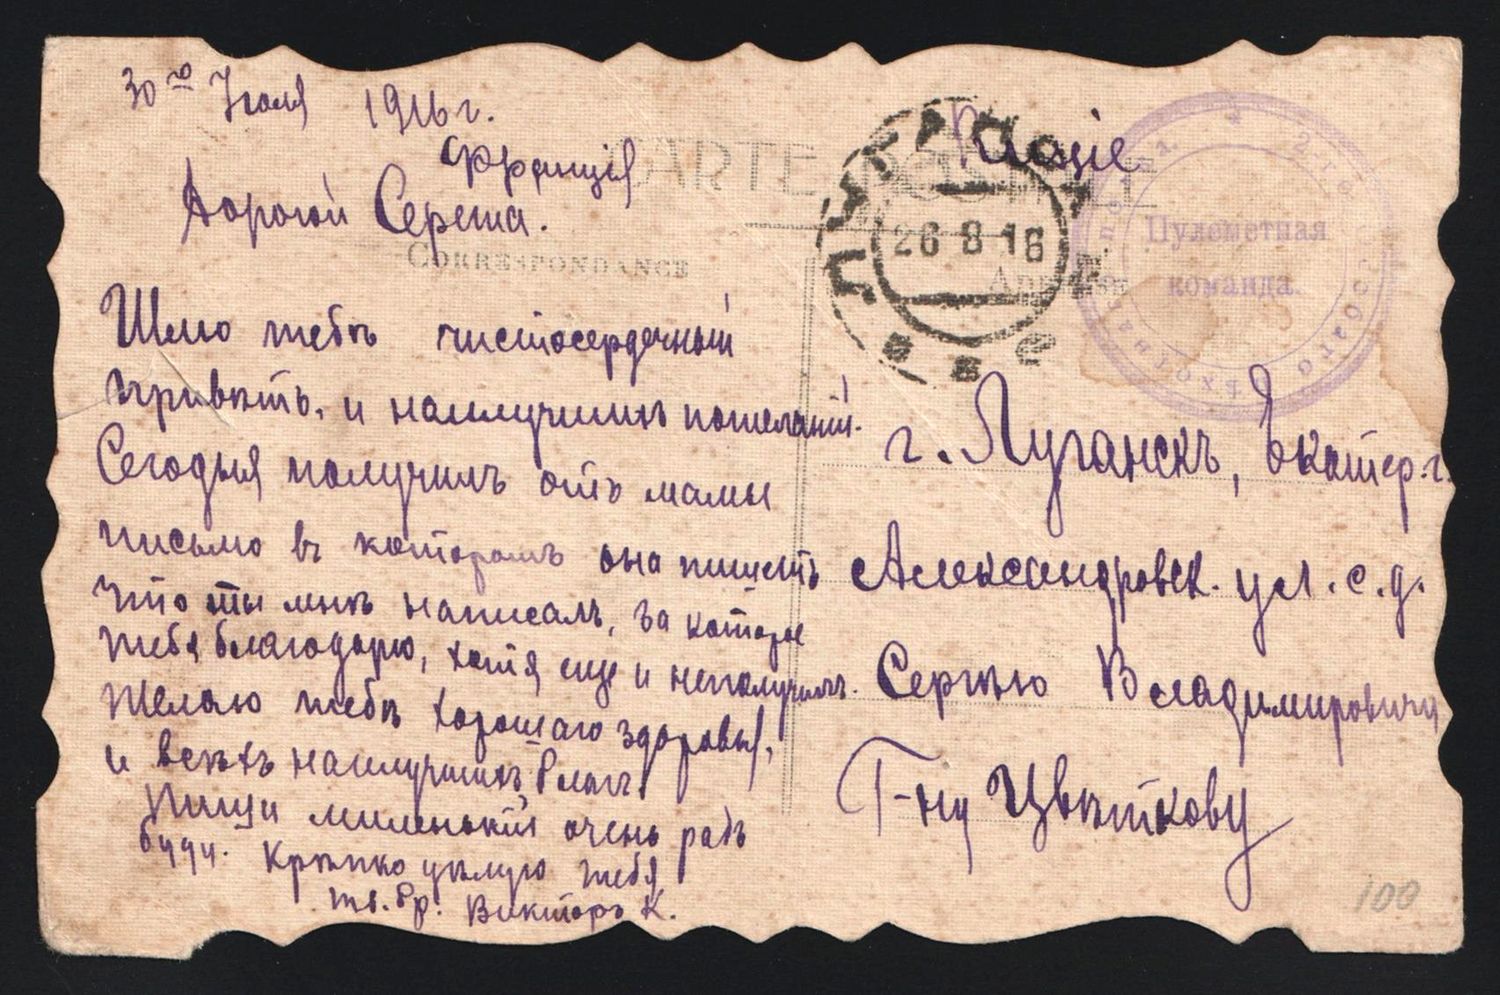 30го Іюля 1916 г.
Франція
Дорогой Сережа.
CARTE POSTALE
CORRESPONDANCE
Шлю тебѣ чистосердечный
привѣтъ. и наилучшихъ пожеланій.
Сегодня получилъ отъ мамы
письмо въ которомъ она пишетъ
что ты мнѣ написалъ, за которое
тебя благодарю, хотя еще и неполучилъ.
Желаю тебѣ хорошаго здоровья,
и всѣхъ наилучшихъ благъ.
Пиши миленькій очень радъ
буду. Крѣпко цѣлую тебя
тв. бр. Викторъ К.
Russie
ЛУГАНСК
26 8 16
Пулеметная
команда.
г. Луганскъ, Екатер. г.
Александровск. ул. с. д.
Сергѣю Владимировичу
Г-ну Цвѣткову
100